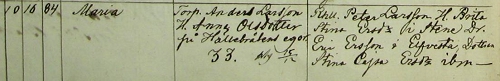 10 16 84. Maria
Torp. Anders Larsson
H. Anna Olsdotter
på Hallebråtens egor.
33.
Kstl. Peter Larsson H. Brita
Stina Ersdr i Stene Dr.
Eric Ersson i Elfvesta, Dottern
Stina Cajsa Ersdr ibm